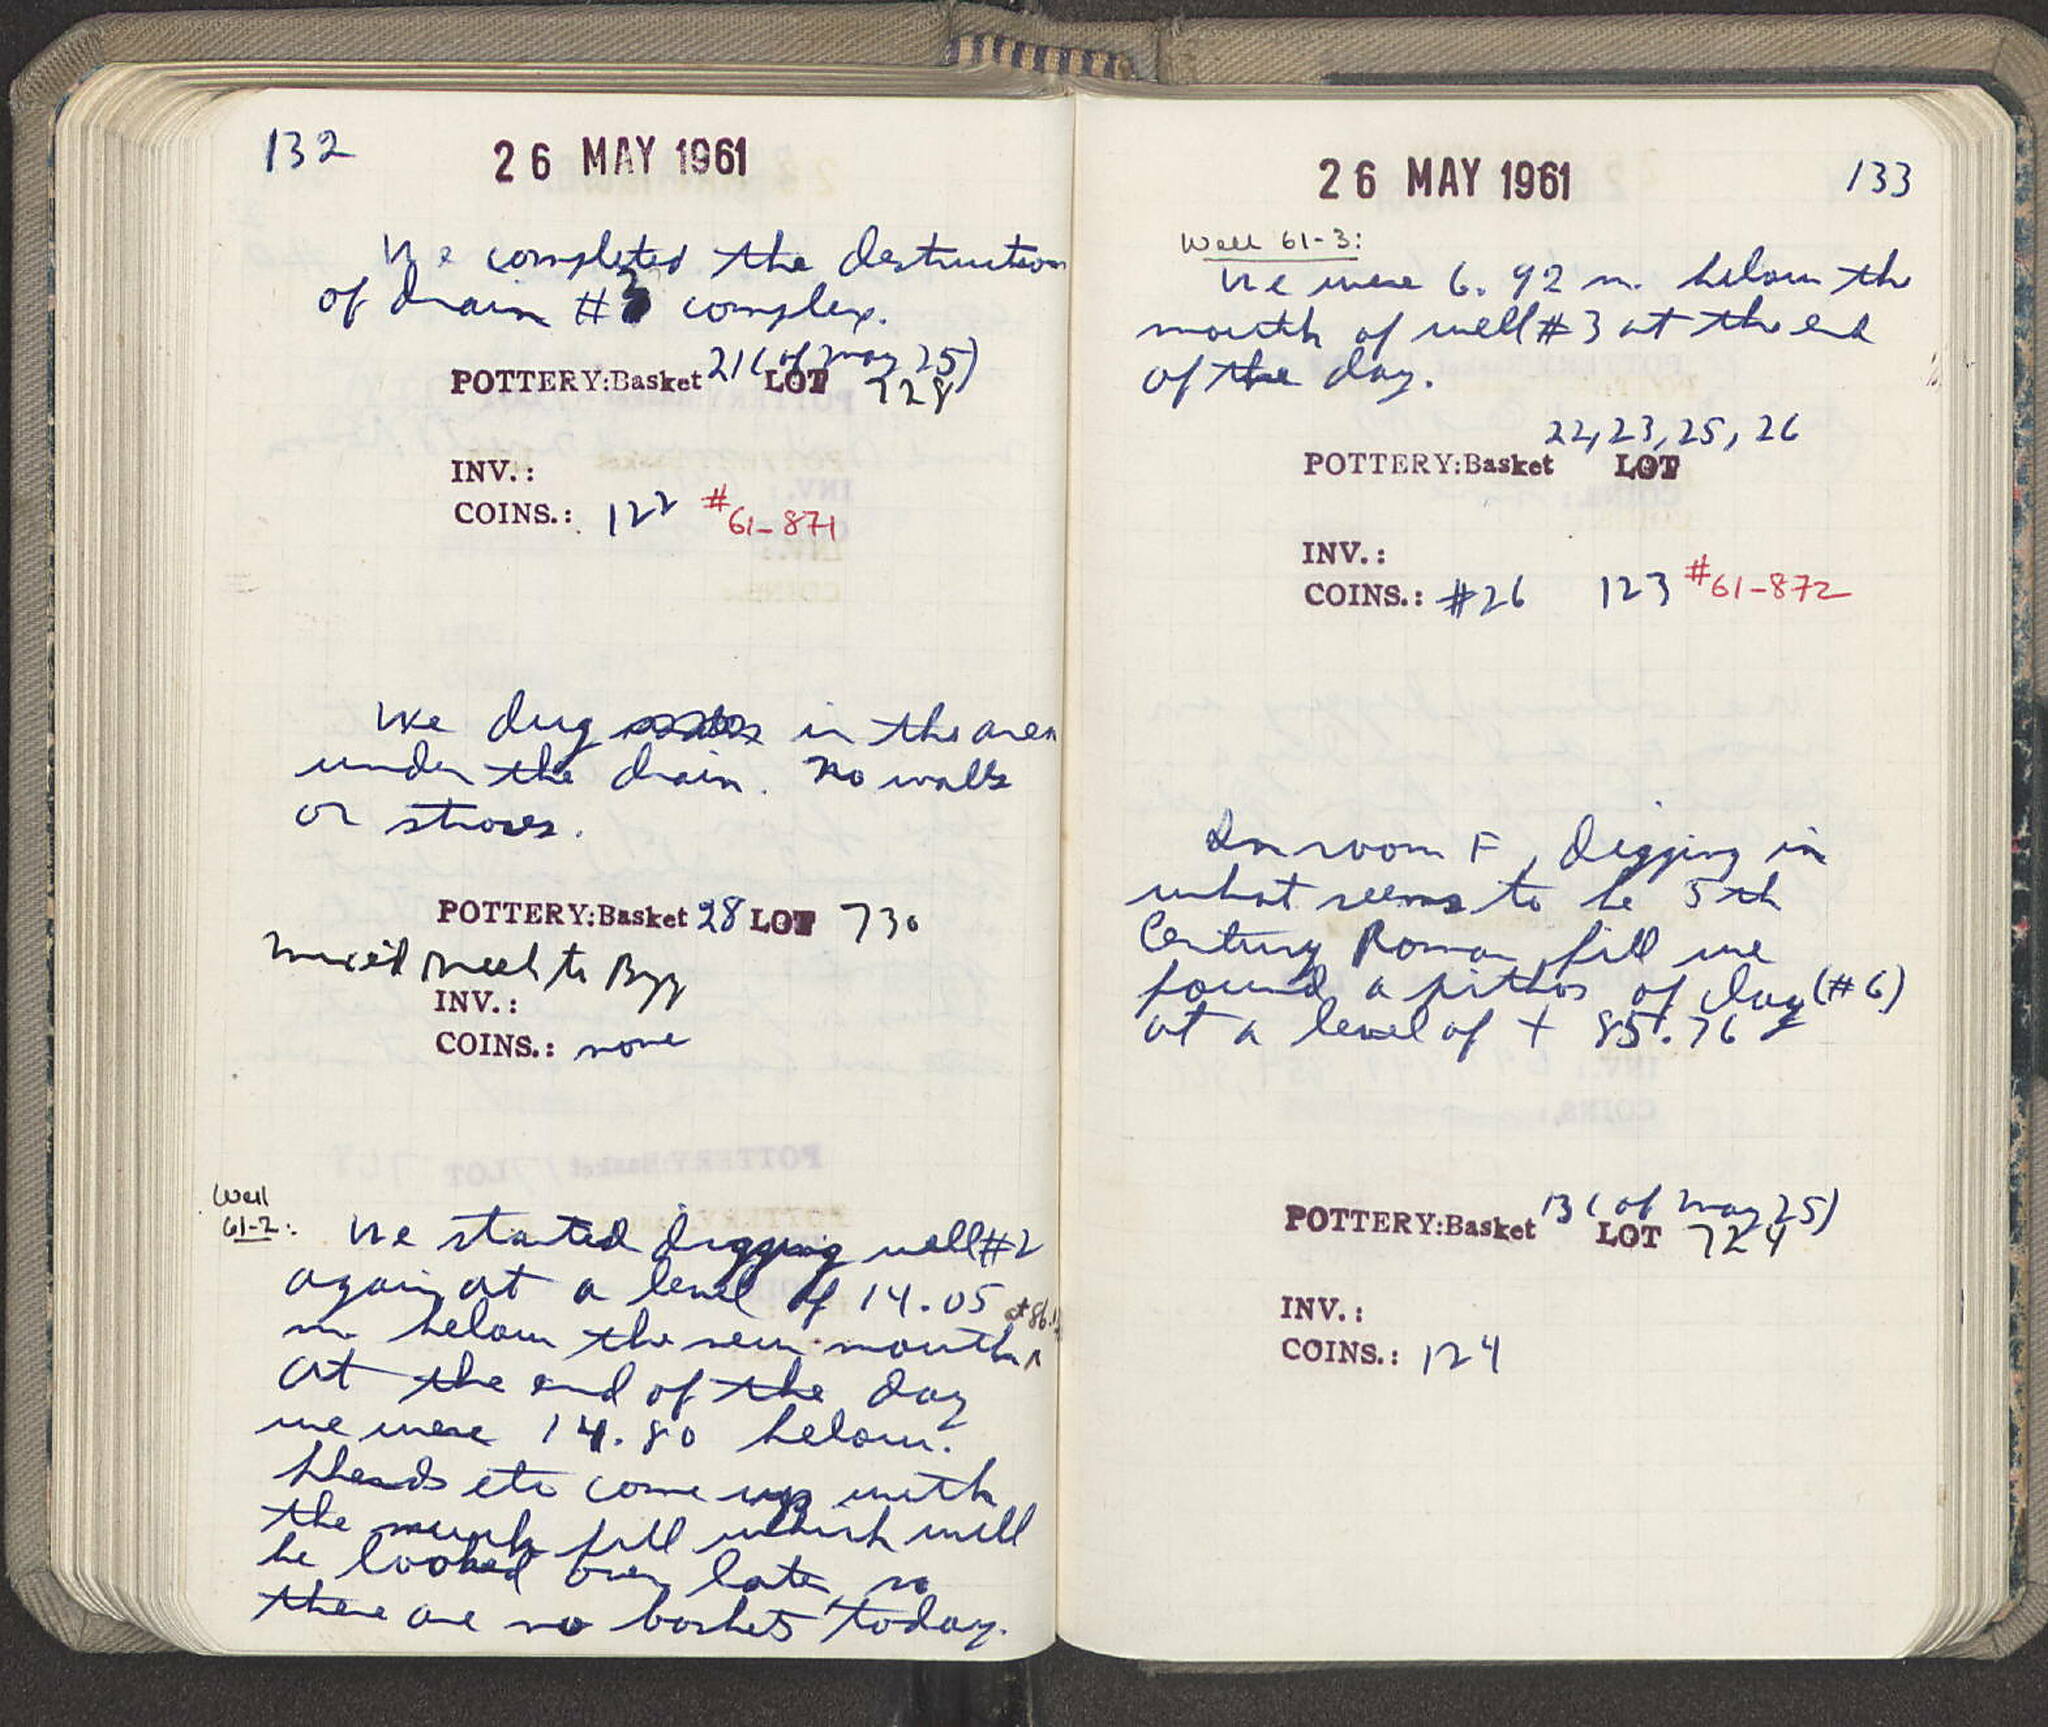 132
26 MAY 1961
We completed the destruction
of drain #3 complex.
21 (of May 25)
POTTERY:Basket LOT 728
INV.:
COINS.: 122 #61-871
We dug in the area
under the drain. No walls
or stroses.
POTTERY:Basket 28 LOT 730
mixed Greek to Byz
INV.:
COINS.: none
Well
61-2:
We started digging well #2
again at a level of 14.05
m below the new mouth
At the end of the day
we were 14.80 below.
Sherds etc come up with
the murk fill which will
be looked over later, so
there are no baskets today.
26 MAY 1961
133
Well 61-3:
We were 6.92 m. below the
mouth of well #3 at the end
of the day.
22, 23, 25, 26
POTTERY:Basket LOT
INV.:
COINS.: #26 123 #61-872
In room F, digging in
what seems to be 5th
Century Roman fill we
found a pithos of clay (#6)
at a level of + 85.76
13 (of May 25)
POTTERY:Basket LOT 724
INV.:
COINS.: 124